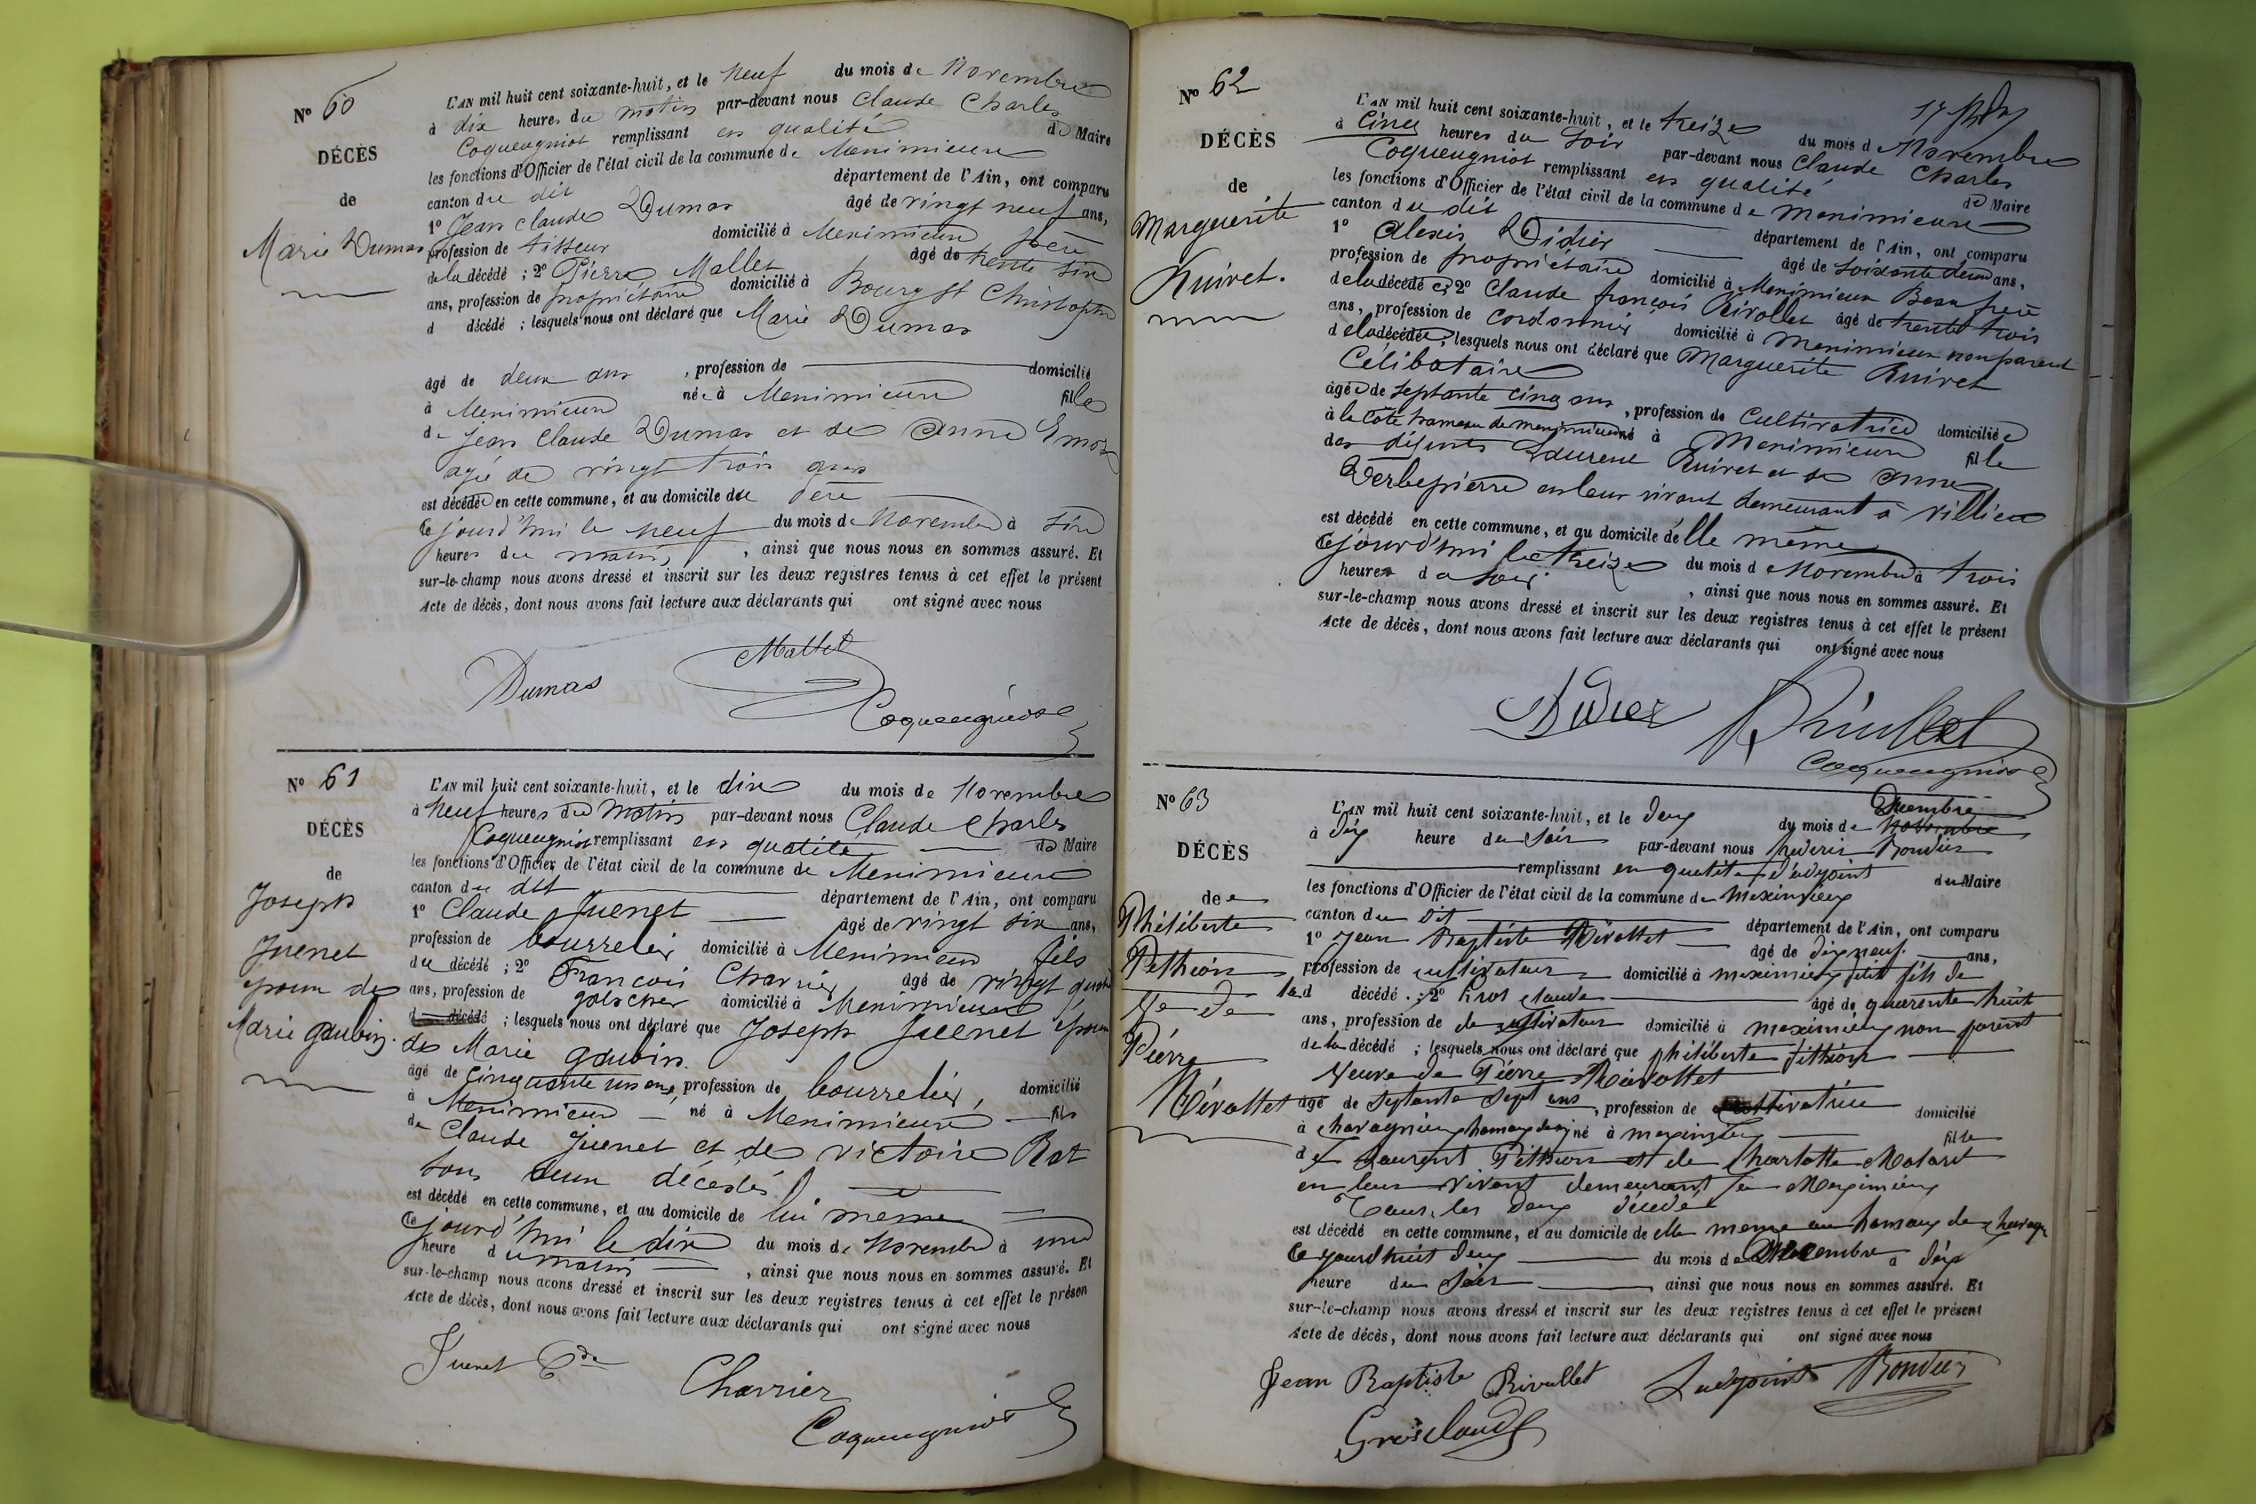 N° 60
DÉCÈS
de
Marie Dumas
L'AN mil huit cent soixante-huit, et le neuf du mois de Novembre
à dix heures du matin par-devant nous Claude Charles
Coqueugniot remplissant en qualité de Maire
les fonctions d'Officier de l'état civil de la commune de Meximieux
canton du dit département de l'Ain, ont comparu
1° Jean Claude Dumas âgé de vingt neuf ans,
profession de tisseur domicilié à Meximieux père
de la décédé ; 2° Pierre Mallet âgé de trente six
ans, profession de propriétaire domicilié à Bourg St Christophe
d décédé ; lesquels nous ont déclaré que Marie Dumas
âgé de deux ans , profession de domicilié
à Meximieux née à Meximieux fille
de Jean Claude Dumas et de Anne
agée de vingt trois ans
est décédée en cette commune, et au domicile due père
Ce jourd'hui le neuf du mois de Novembre à six
heures du matin , ainsi que nous nous en sommes assuré. Et
sur-le-champ nous avons dressé et inscrit sur les deux registres tenus à cet effet le présent
Acte de décès, dont nous avons fait lecture aux déclarants qui ont signé avec nous
Mallet
Dumas
Coqueugniot
N° 61
DÉCÈS
de
Joseph
Juenet
epoux de
Marie Gaubin.
L'AN mil huit cent soixante-huit, et le dix du mois de Novembre
à neuf heures du matin par-devant nous Claude Charles
Coqueugniot remplissant en qualité de Maire
les fonctions d'Officier de l'état civil de la commune de Meximieux
canton du dit département de l'Ain, ont comparu
1° Claude Juenet âgé de vingt six ans,
profession de bourrelier domicilié à Meximieux fils
du décédé ; 2° François Charrier âgé de vingt quatre
ans, profession de domicilié à Meximieux
d décédé ; lesquels nous ont déclaré que Joseph Juenet epoux
de Marie Gaubin
âgé de cinquante un ans, profession de bourrelier, domicilié
à Meximieux né à Meximieux fils
de Claude Juenet et de victoire Rat
tous deux décédés
est décédé en cette commune, et au domicile de lui même
Ce jourd'hui le dix du mois de Novembre à une
heure du matin , ainsi que nous nous en sommes assuré. Et
sur-le-champ nous avons dressé et inscrit sur les deux registres tenus à cet effet le présen
Acte de décès, dont nous avons fait lecture aux déclarants qui ont signé avec nous
Juenet Cde
Charrier
Coqueugniot
N° 62
DÉCÈS
de
Marguerite
Ruivet.
L'AN mil huit cent soixante-huit, et le treize du mois de Novembre
à Cinq heures du Soir par-devant nous Claude Charles
Coqueugniot remplissant en qualité de Maire
les fonctions d'Officier de l'état civil de la commune de Meximieux
canton du dit département de l'Ain, ont comparu
1° Alexis Didier âgé de soixante deux ans,
profession de propriétaire domicilié à Meximieux Beau frère
de la décédé et 2° Claude françois Rivollet âgé de trente trois
ans, profession de cordonnier domicilié à Meximieux non parent
de la décédée, lesquels nous ont déclaré que Marguerite Ruivet
Célibataire
âgée de septante cinq ans , profession de Cultivatrice domiciliée
à la Côte hameau de Meximieux né à Meximieux fille
des défunts Laurent Ruivet et de Anne
Verbepierre en leur vivant demeurant à Villieu
est décédé en cette commune, et au domicile d'elle même
Ce jourd'hui le treize du mois de Novembre à trois
heures du soir , ainsi que nous nous en sommes assuré. Et
sur-le-champ nous avons dressé et inscrit sur les deux registres tenus à cet effet le présent
Acte de décès, dont nous avons fait lecture aux déclarants qui ont signé avec nous
Didier
Rivollet
Coqueugniot
N° 63
DÉCÈS
de
Philiberte
Pethion
Ve de
Pierre
Révollet
L'AN mil huit cent soixante-huit, et le deux du mois de Novembre Decembre
à dix heure du soir par-devant nous Bouvier
remplissant en qualité d'adjoint du Maire
les fonctions d'Officier de l'état civil de la commune de Meximieux
canton du dit département de l'Ain, ont comparu
1° Jean Baptiste Révollet âgé de dix neuf ans,
profession de cultivateur domicilié à Meximieux petit fils de
la d décédé ; 2° Gros claude âgé de quarente huit
ans, profession de cultivateur domicilié à meximieux non parent
de la décédé ; lesquels nous ont déclaré que philiberte Pethion
Veuve de Pierre Révollet
âgé de septante sept ans , profession de Cultivatrice domicilié
à chavagnieux hamaux de né à meximieux fille
de Laurent Pethion et de Charlotte
en leur vivant demeurant à Meximieux
Tous les deux décédé
est décédé en cette commune, et au domicile de elle meme au hamaux de
Ce jourd'huit deux du mois de Decembre à dix
heure du soir , ainsi que nous nous en sommes assuré. Et
sur-le-champ nous avons dressé et inscrit sur les deux registres tenus à cet effet le présent
Acte de décès, dont nous avons fait lecture aux déclarants qui ont signé avec nous
Jean Baptiste Rivollet
L'adjoint Bouvier
Gros claude